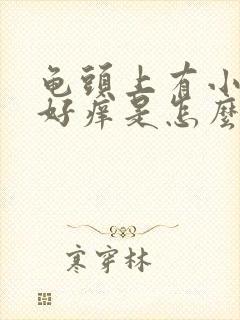 龟頭上有小
好痒是怎麼
寒穿林